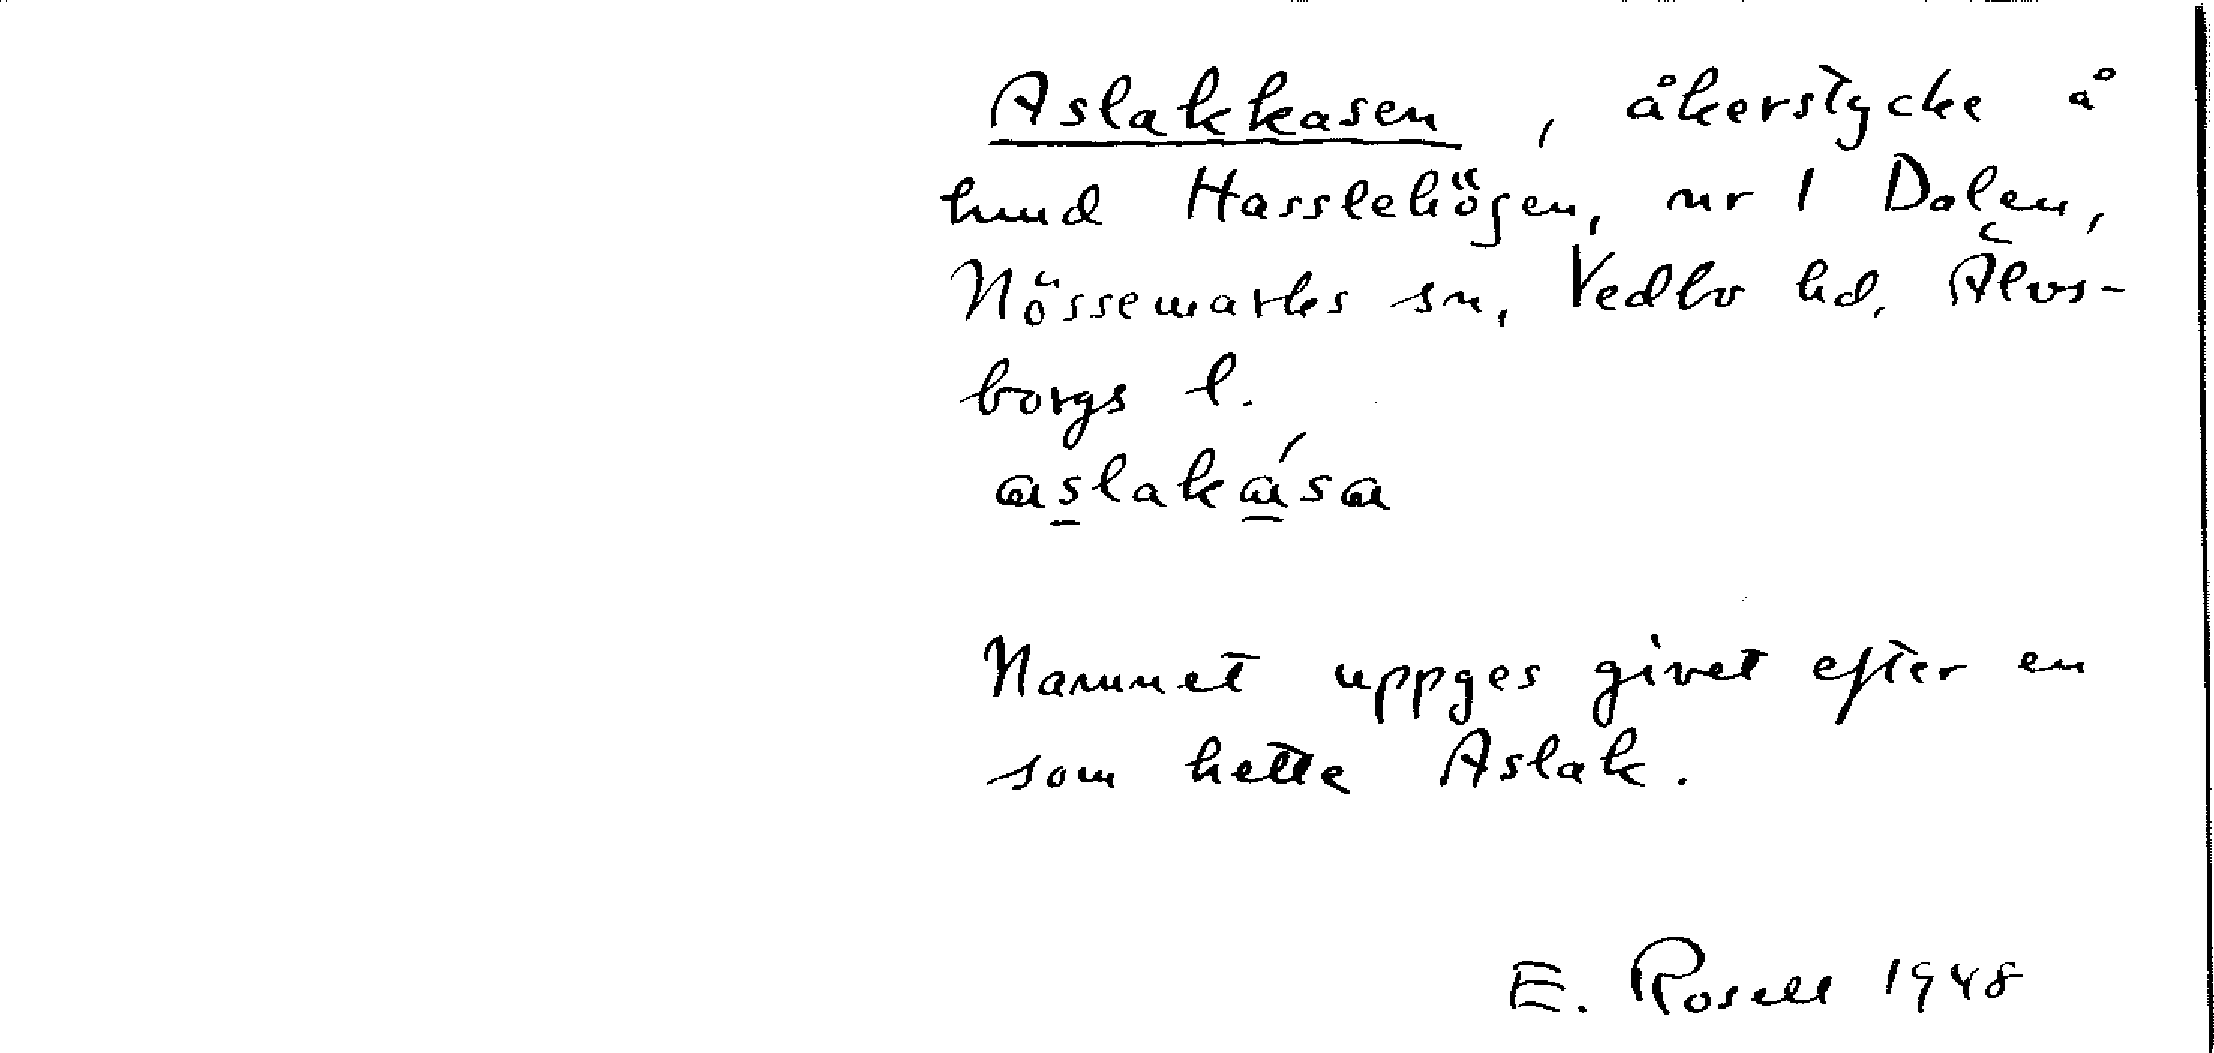 Aslakkasen, åkerstycke å
hmd Hasslehögen, nr 1 Dalen,
Nössemarks sn, Vedbo hd, Älvs-
borgs l.
aslakása

Namnet uppges givet efter en
som hette Aslak.

E. Rosell 1948